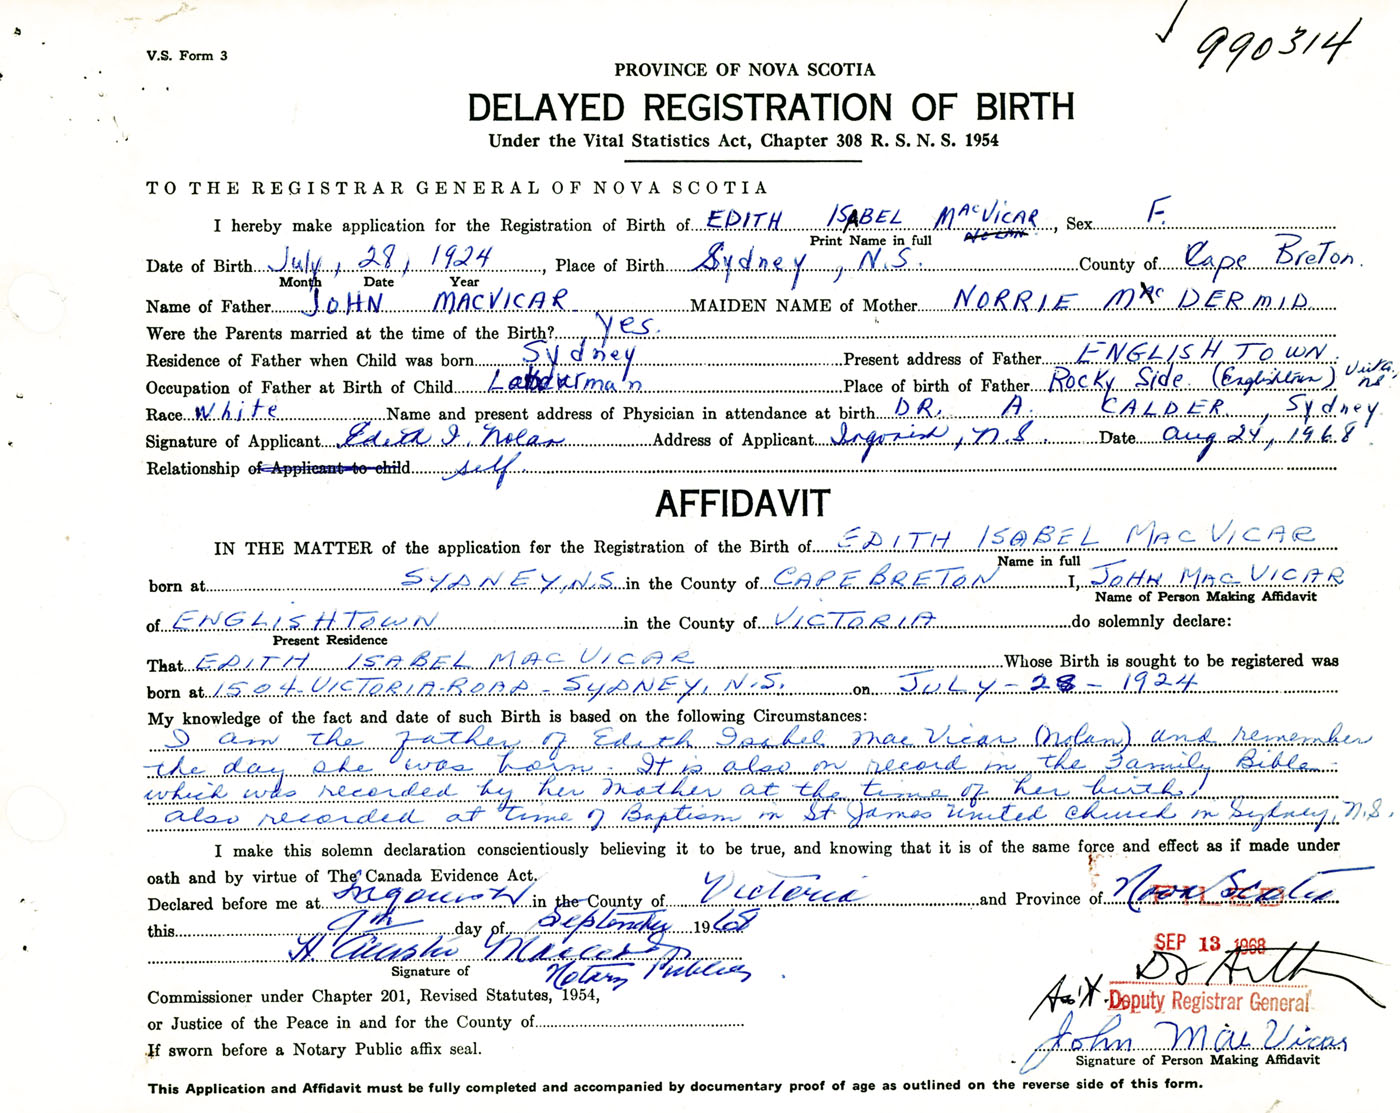 990314
V.S. Form 3
PROVINCE OF NOVA SCOTIA
DELAYED REGISTRATION OF BIRTH
Under the Vital Statistics Act, Chapter 308 R. S. N. S. 1954
TO THE REGISTRAR GENERAL OF NOVA SCOTIA
I hereby make application for the Registration of Birth of EDITH ISABEL MacVICAR, Sex F.
Print Name in full
Date of Birth July, 28, 1924, Place of Birth Sydney, N.S. County of Cape Breton.
Month Date Year
Name of Father JOHN MACVICAR MAIDEN NAME of Mother NORRIE Mac DERMID
Were the Parents married at the time of the Birth? yes.
Residence of Father when Child was born Sydney Present address of Father ENGLISHTOWN
Occupation of Father at Birth of Child Place of birth of Father Rocky Side (Englishtown) N.S.
Race White Name and present address of Physician in attendance at birth DR. A. CALDER, Sydney
Signature of Applicant Edith I. Nolan Address of Applicant Ingonish, N.S. Date Aug 24, 1968
Relationship of Applicant to child self.
AFFIDAVIT
IN THE MATTER of the application for the Registration of the Birth of EDITH ISABEL MAC VICAR
Name in full
born at SYDNEY, N.S. in the County of CAPE BRETON I, JOHN MAC VICAR
Name of Person Making Affidavit
of ENGLISHTOWN in the County of VICTORIA do solemnly declare:
Present Residence
That EDITH ISABEL MAC VICAR Whose Birth is sought to be registered was
born at 1504-VICTORIA-ROAD-SYDNEY, N.S. on JULY-28-1924
My knowledge of the fact and date of such Birth is based on the following Circumstances:
I am the father of Edith Isabel MacVicar (Nolan) and remember
the day she was born. It is also on record in the Family Bible
which was recorded by her Mother at the time of her birth!
also recorded at time of Baptism in St James United Church in Sydney, N.S.
I make this solemn declaration conscientiously believing it to be true, and knowing that it is of the same force and effect as if made under
oath and by virtue of The Canada Evidence Act.
Declared before me at Ingonish in the County of Victoria and Province of Nova Scotia
this 9th day of September 1968
SEP 13 1968
Notary Public
Signature of
Commissioner under Chapter 201, Revised Statutes, 1954,
Ass't. Deputy Registrar General
or Justice of the Peace in and for the County of
John MacVicar
If sworn before a Notary Public affix seal.
Signature of Person Making Affidavit
This Application and Affidavit must be fully completed and accompanied by documentary proof of age as outlined on the reverse side of this form.